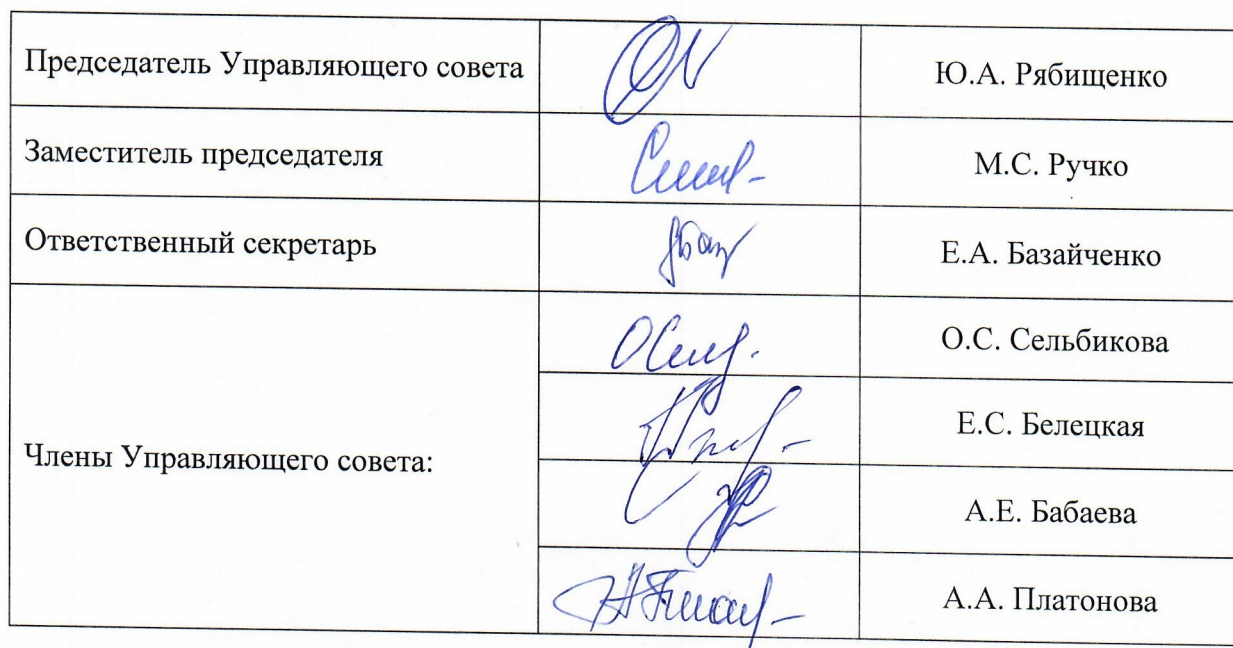 Председатель Управляющего совета Ю.А. Рябищенко
Заместитель председателя М.С. Ручко
Ответственный секретарь Е.А. Базайченко
Члены Управляющего совета:
О.С. Сельбикова
Е.С. Белецкая
А.Е. Бабаева
А.А. Платонова